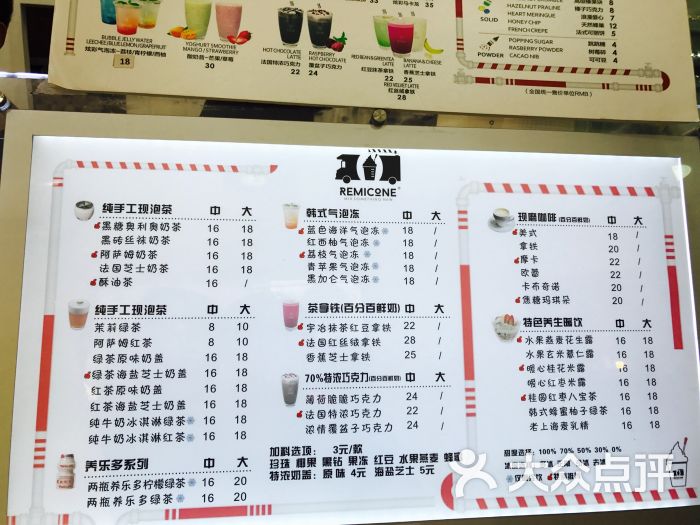 BUBBLE JELLY WATER
LEECHEE/BLUELEMON/GRAPEFRUIT
炫彩气泡冻-荔枝/青柠檬/西柚
18
YOGHURT SMOOTHIE
MANGO/STRAWBERRY
酸奶昔-芒果/草莓
30
HOT CHOCOLATE
LATTE
法国特浓巧克力
22 24
RASPBERRY
HOT CHOCOLATE
LATTE
覆盆子巧克力
22 24
RED BEAN & GREEN TEA
LATTE
红豆抹茶拿铁
22 28
BANANA & CHEESE
LATTE
香蕉芝士拿铁
25
RED VELVET LATTE
红丝绒拿铁
28
SOLID
HAZELNUT PRALINE
HEART MERINGUE
HONEY CHIP
FRENCH CREPE
榛子巧克力 4
浪漫爱心
天然蜂巢
法式可丽饼 5
POWDER
POPPING SUGAR
RASPBERRY POWDER
CACAO NIB
跳跳糖 4
树莓碎 4
可可豆 4
(全国统一售价单位RMB)
REMICONE
纯手工现泡茶 中 大
黑糖奥利奥奶茶 16 18
黑砖丝袜奶茶 16 18
阿萨姆奶茶 16 18
法国芝士奶茶 16 18
酥油茶 16 /
纯手工现泡茶 中 大
茉莉绿茶 8 10
阿萨姆红茶 8 10
绿茶原味奶盖 16 18
绿茶海盐芝士奶盖 16 18
红茶原味奶盖 16 18
红茶海盐芝士奶盖 16 18
纯牛奶冰淇淋绿茶 16 18
纯牛奶冰淇淋红茶 16 18
养乐多系列 中 大
两瓶养乐多柠檬绿茶 16 20
两瓶养乐多绿茶 16 20
韩式气泡冻 中 大
蓝色海洋气泡冻 18 /
红西柚气泡冻 18 /
荔枝气泡冻 18 /
青苹果气泡冻 18 /
黑加仑气泡冻 18 /
茶拿铁(百分百鲜奶) 中 大
宇冶抹茶红豆拿铁 22 /
法国红丝绒拿铁 28 /
香蕉芝士拿铁 25 /
70%特浓巧克力(百分百鲜奶) 中 大
薄荷脆脆巧克力 24 /
法国特浓巧克力 22 /
浓情覆盆子巧克力 24 /
加料选项: 3元/款
珍珠 椰果 黑钻 果冻 红豆 水果燕麦 蜂蜜
特浓奶盖: 原味 4元 海盐芝士 5元
现磨咖啡(百分百鲜奶) 中 大
美式 18 /
拿铁 20 /
摩卡 22 /
欧蕾 22 /
卡布奇诺 20 /
焦糖玛琪朵 20 /
特色养生暖饮 中 大
水果燕麦花生露 16 18
水果玄米薏仁露 16 18
暖心桂花米露 16 18
暖心红枣米露 16 18
桂圆红枣八宝茶 16 18
韩式蜂蜜柚子绿茶 16 18
老上海麦乳精 16 18
甜度选择: 100% 70% 50% 30% 0%
大众点评